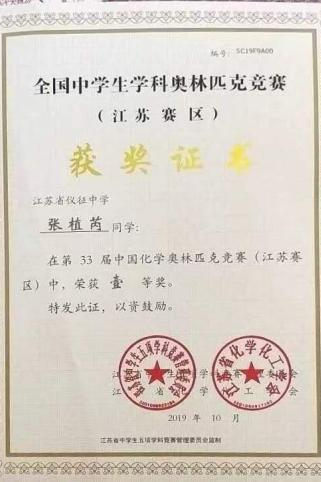 编号: SC19F9A00
全国中学生学科奥林匹克竞赛
(江苏赛区)
获奖证书
江苏省仪征中学
张植芮 同学:
在第 33 届中国化学奥林匹克竞赛(江苏赛
区)中,荣获 壹 等奖。
特发此证,以资鼓励。
江苏省化学化工学会
2019 年 10 月
江苏省中学生五项学科竞赛管理委员会监制